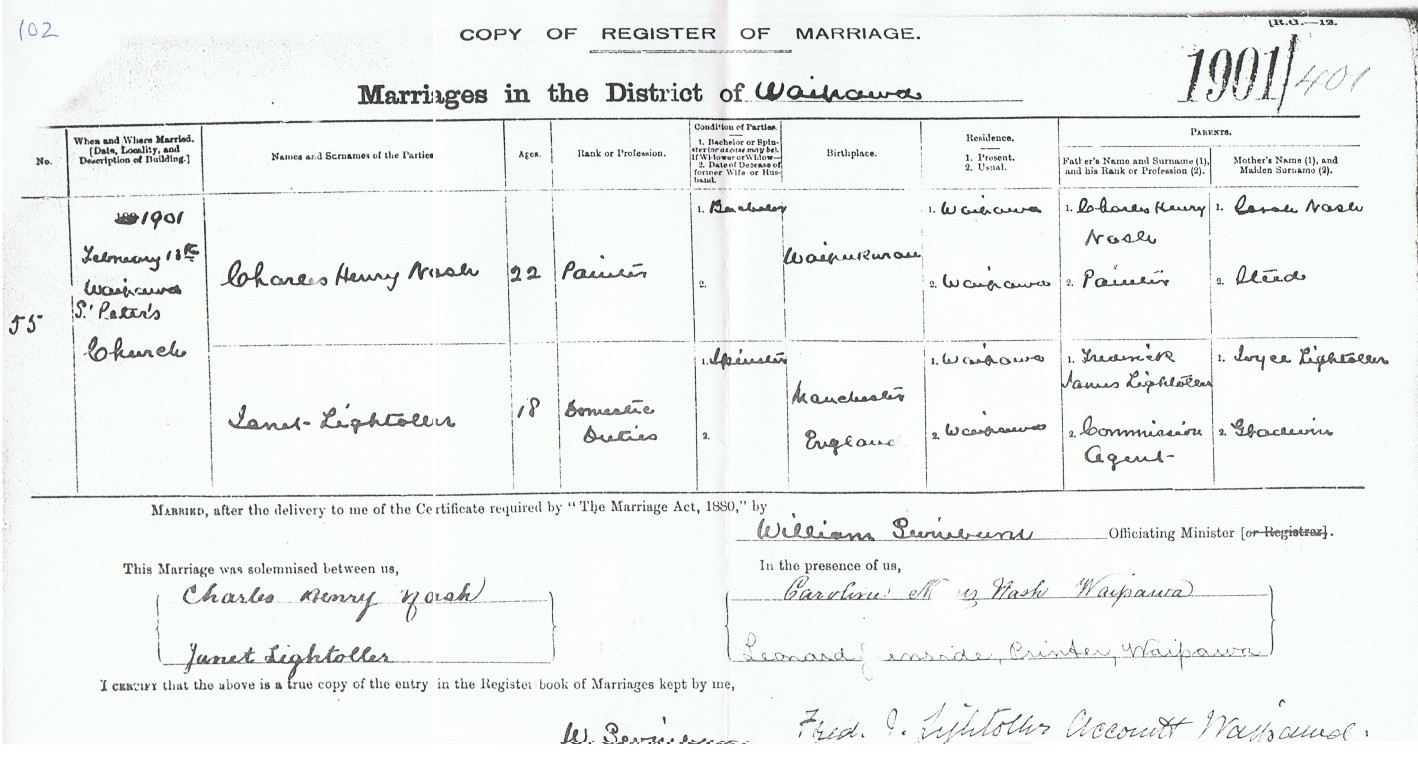 102
[R.G.—12.
COPY OF REGISTER OF MARRIAGE.
1901/401
Marriages in the District of Waipawa
No.
When and Where Married.
[Date, Locality, and
Description of Building.]
Names and Surnames of the Parties
Ages.
Rank or Profession.
Condition of Parties.
1. Bachelor or Spin-
ster (or as case may be).
If Widower or Widow—
2. Date of Decease of
former Wife or Hus-
band.
Birthplace.
Residence.
1. Present.
2. Usual.
PARENTS.
Father's Name and Surname (1),
and his Rank or Profession (2).
Mother's Name (1), and
Maiden Surname (2).
55
1901
February 18th
Waipawa
St Peter's
Church
Charles Henry Nash
22
Painter
1. Bachelor
2.
Waipukurau
1. Waipawa
2. Waipawa
1. Charles Henry
Nash
2. Painter
1. Sarah Nash
2. Steed
Janet Lightoller
18
Domestic
Duties
1. Spinster
2.
Manchester
England
1. Waipawa
2. Waipawa
1. Frederick
James Lightoller
2. Commission
Agent
1. Lightoller
2.
MARRIED, after the delivery to me of the Certificate required by "The Marriage Act, 1880," by
William Swinburn Officiating Minister [or Registrar].
This Marriage was solemnised between us,
Charles Henry Nash
Janet Lightoller
In the presence of us,
Caroline Nash Waipawa
Leonard Printer, Waipawa
I CERTIFY that the above is a true copy of the entry in the Register book of Marriages kept by me,
W. Swinburn
Fred. J. Lightoller Accountt Waipawa.